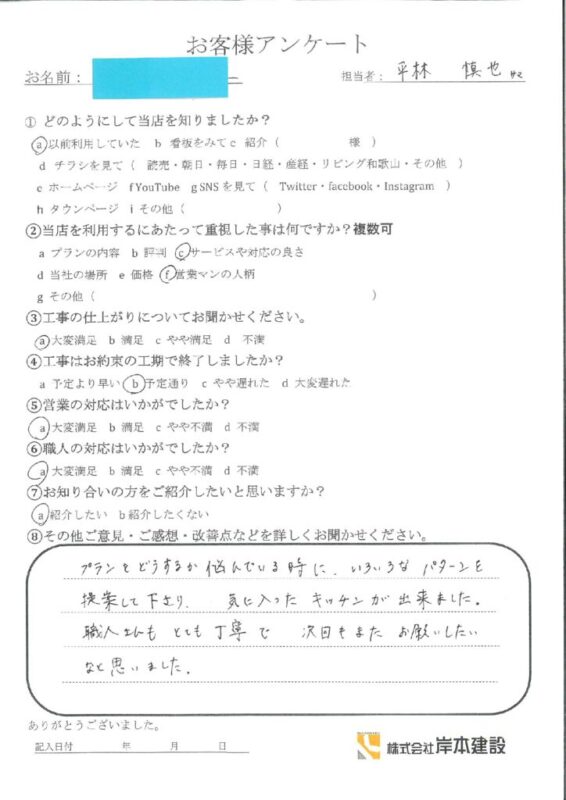 お客様アンケート
お名前： 担当者： 平林 慎也
① どのようにして当店を知りましたか？
a 以前利用していた b 看板をみて c 紹介（ 様）
d チラシを見て（ 読売・朝日・毎日・日経・産経・リビング和歌山・その他 ）
e ホームページ f YouTube g SNSを見て（ Twitter・facebook・Instagram ）
h タウンページ i その他（ ）
②当店を利用するにあたって重視した事は何ですか？複数可
a プランの内容 b 評判 c サービスや対応の良さ
d 当社の場所 e 価格 f 営業マンの人柄
g その他（ ）
③工事の仕上がりについてお聞かせください。
a 大変満足 b 満足 c やや満足 d 不満
④工事はお約束の工期で終了しましたか？
a 予定より早い b 予定通り c やや遅れた d 大変遅れた
⑤営業の対応はいかがでしたか？
a 大変満足 b 満足 c やや不満 d 不満
⑥職人の対応はいかがでしたか？
a 大変満足 b 満足 c やや不満 d 不満
⑦お知り合いの方をご紹介したいと思いますか？
a 紹介したい b 紹介したくない
⑧その他ご意見・ご感想・改善点などを詳しくお聞かせください。
プランをどうするか悩んでいる時に、いろいろな パターンを
提案して下さり、 気に入った キッチンが 出来ました。
職人さんも とても 丁寧で 次回もまた お願いしたい
なと思いました。
ありがとうございました。
記入日付 年 月 日
株式会社 岸本建設